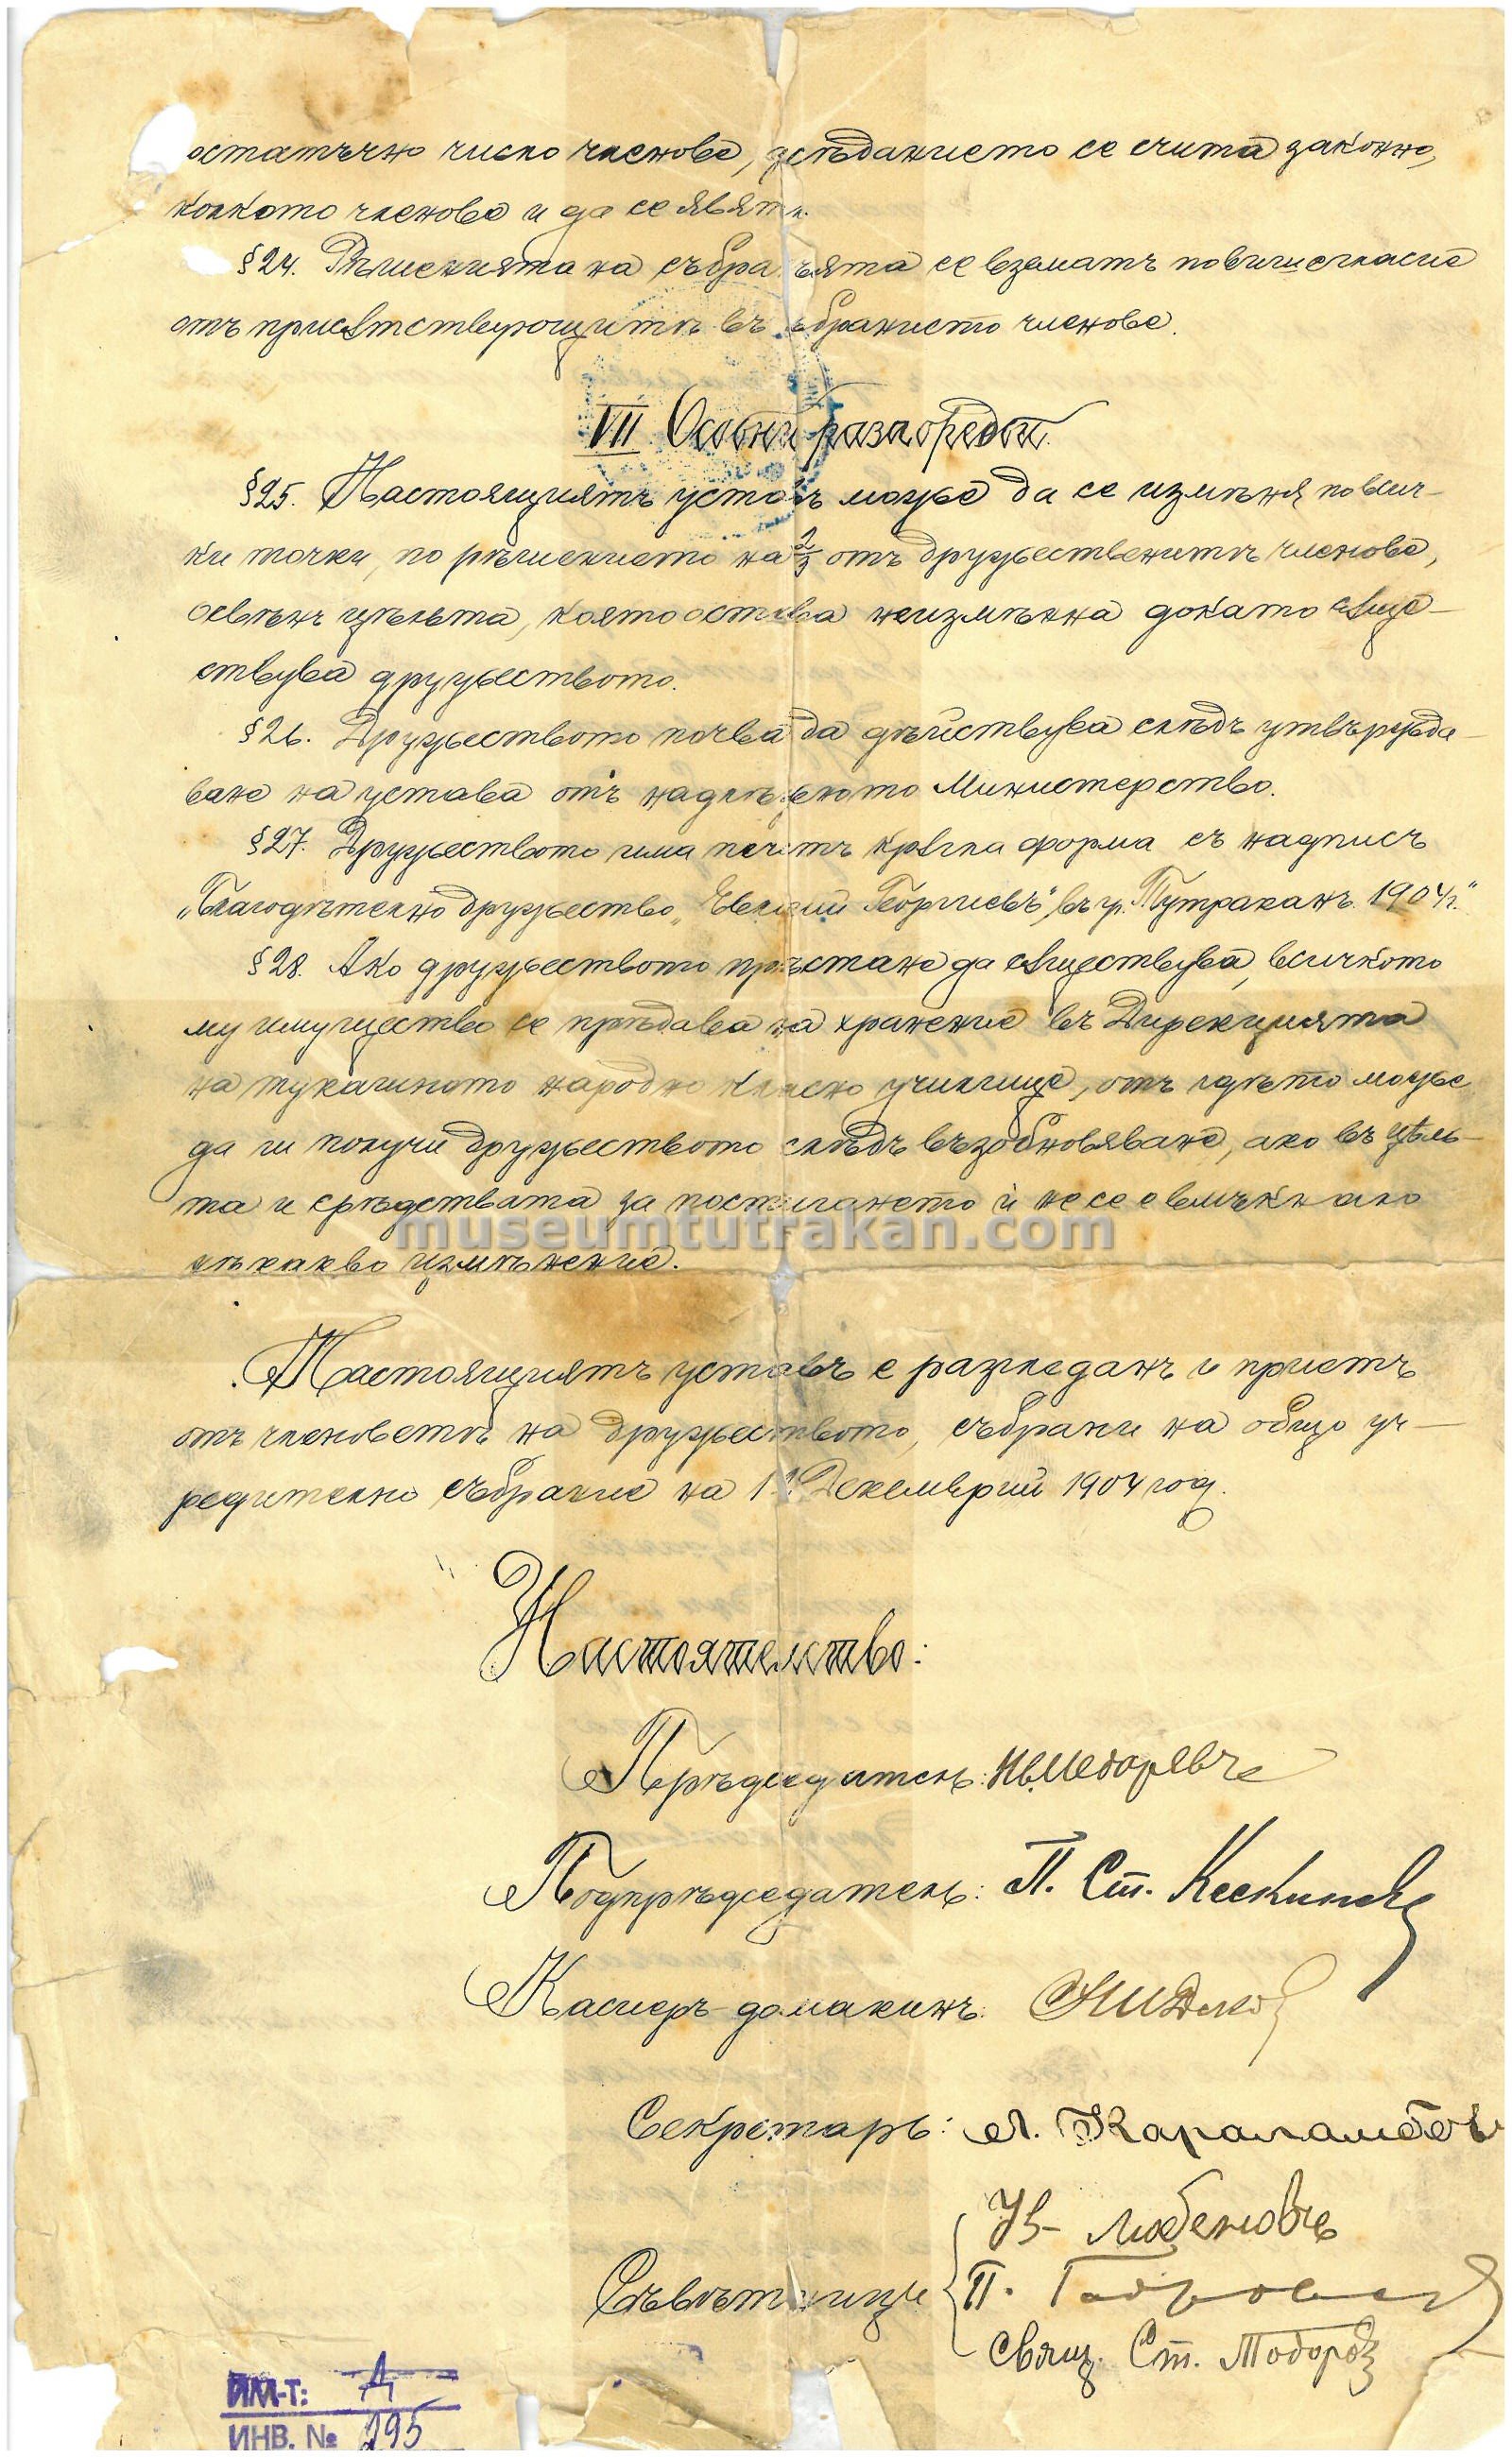 остатъчно число членове, засѣданието се счита законно,
колкото членове и да се явятъ.
§24. Рѣшенията на събра ията се взематъ по вишегласие
отъ присѫтствующитѣ въ събранието членове.
VII. Особни разпоредби.
§25. Настоящиятъ уставъ може да се измѣня по всич-
ки точки, по рѣшението на 2/3 отъ дружественитѣ членове,
освѣнъ цѣльта, която остава неизмѣнна докато сѫще-
ствува дружеството.
§26. Дружеството почва да дѣйствува слѣдъ утвържда-
ване на устава отъ надлѣжното Министерство.
§27. Дружеството има печатъ крѫгла форма съ надписъ
„Благодѣтелно дружество „Евлогий Георгиевъ", въ гр. Тутраканъ. 1904 г."
§28. Ако дружеството прѣстане да сѫществува, всичкото
му имущество се прѣдава на хранение въ Дирекцията
на тукашното народно класно училище, отъ гдѣто може
да ги получи дружеството слѣдъ възобновяване, ако въ цѣль-
та и срѣдствата за постигането ѝ не се е вмъкнало
нѣкакво измѣнение.
Настоящиятъ уставъ е разгледанъ и приетъ
отъ членоветѣ на дружеството, събрани на общо уч-
редително събрание на 1й Декемврий 1904 год.
Настоятелство:
Прѣдседатель:
Подпрѣдседатель: П. Ст. Кескиновъ
Касиеръ-домакинъ:
Секретарь: А. Караламбовъ
Съвѣтници Ив. Любеновъ
П.
Свящ. Ст. Тодоровъ
museumtutrakan.com
ИМ-Т: Д
ИНВ. № 295